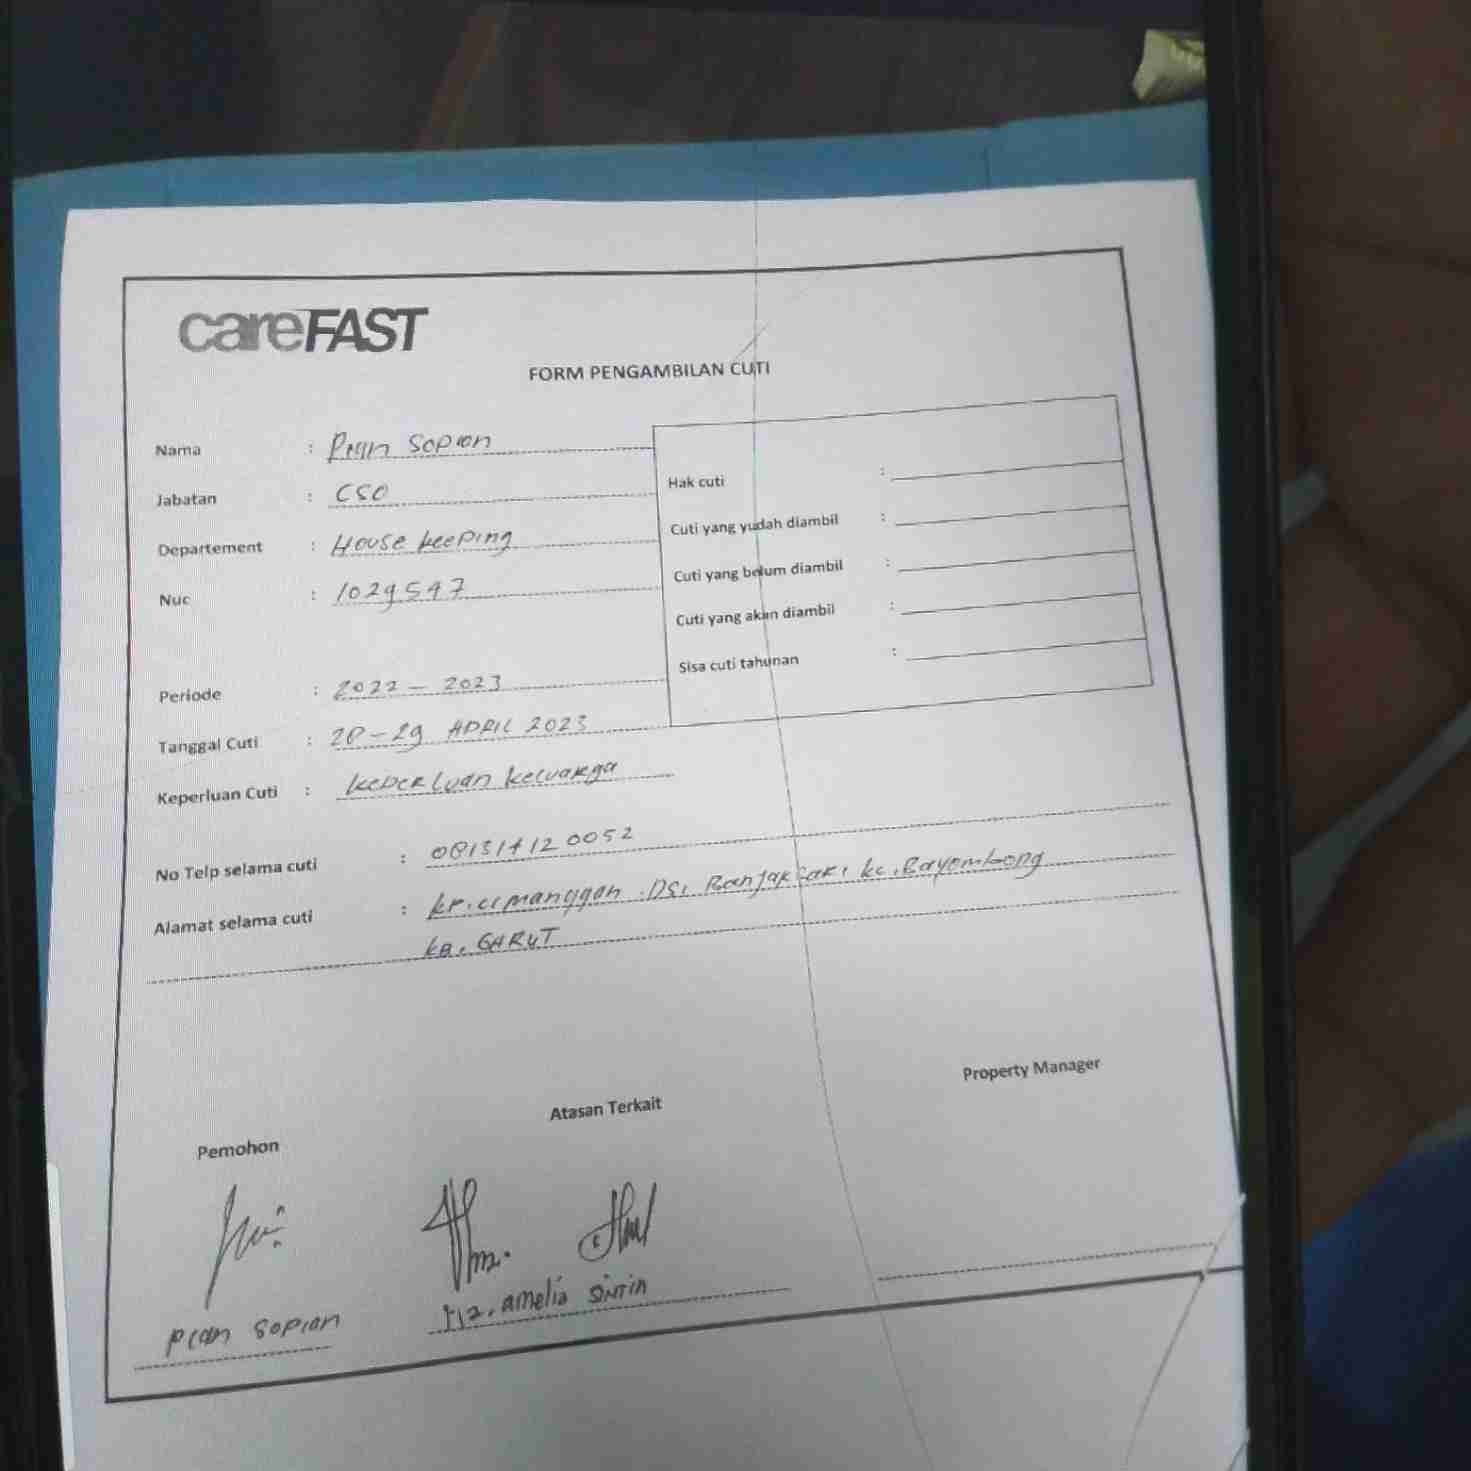 careFAST
FORM PENGAMBILAN CUTI
Nama : Pian Sopian
Jabatan : CSO
Departement : House keeping
Nuc : 1029597
Periode : 2022 - 2023
Tanggal Cuti : 28-29 APRIL 2023
Keperluan Cuti : keperluan keluarga
Hak cuti :
Cuti yang yudah diambil :
Cuti yang belum diambil :
Cuti yang akan diambil :
Sisa cuti tahunan :
No Telp selama cuti :
Alamat selama cuti : kp. cimanggan . DS, Banjarsari kc. Bayombong
kB. GARUT
Pemohon
Atasan Terkait
Property Manager
Pian Sopian
amelia